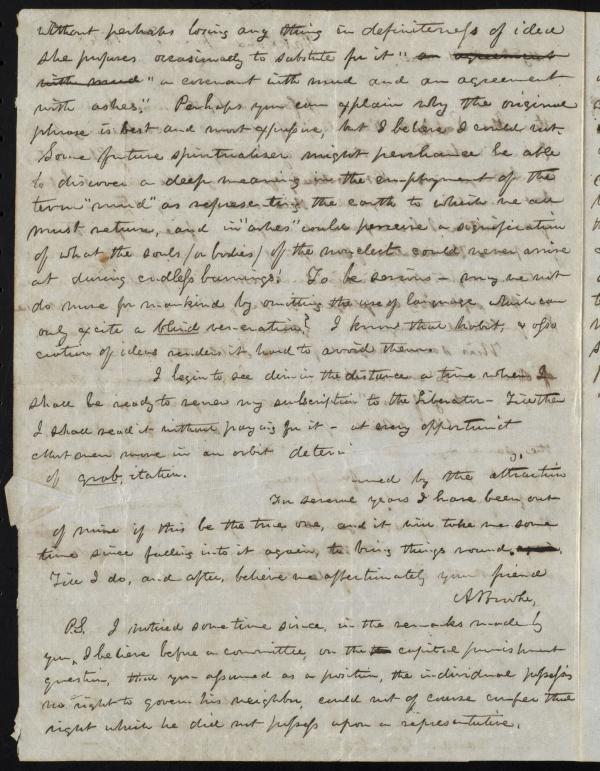 without perhaps losing any thing in definiteness of idea
she proposes occasionally to substitute for it " an agreement
with mud " a covenant with mud and an agreement
with ashes." Perhaps you can explain why the original
phrase is best and most expressive, but I believe I could not.
Some future spiritualiser might perchance be able
to discover a deep meaning in the employment of the
term "mud" as representing the earth to which we all
must return, and in "ashes" could perceive a signification
of what the souls (or bodies) of the nonelect could never arrive
at during endless burnings! To be serious – may we not
do more for mankind by omitting the use of language which can
only excite a blind veneration? I know that habit, & asso
ciation of ideas renders it hard to avoid them.
I begin to see dim in the distance a time when I
shall be ready to renew my subscription to the Liberator – Till then
I shall read it without paying for it – at every opportunit
y.
Most men move in an orbit deter
mined by the attraction
of grab, itation.
For several years I have been out
of mine if this be the true one, and it will take me some
time since falling into it again, to bring things round.
Till I do, and after, believe me affectionately your friend
A Brooke,
P.S. I noticed some time since, in the remarks made by
you, I believe before a committee, on the capital punishment
question, that you assumed as a position, the individual possess's
no right to govern his neighbor, could not of course confer that
right which he did not possess upon a representative.